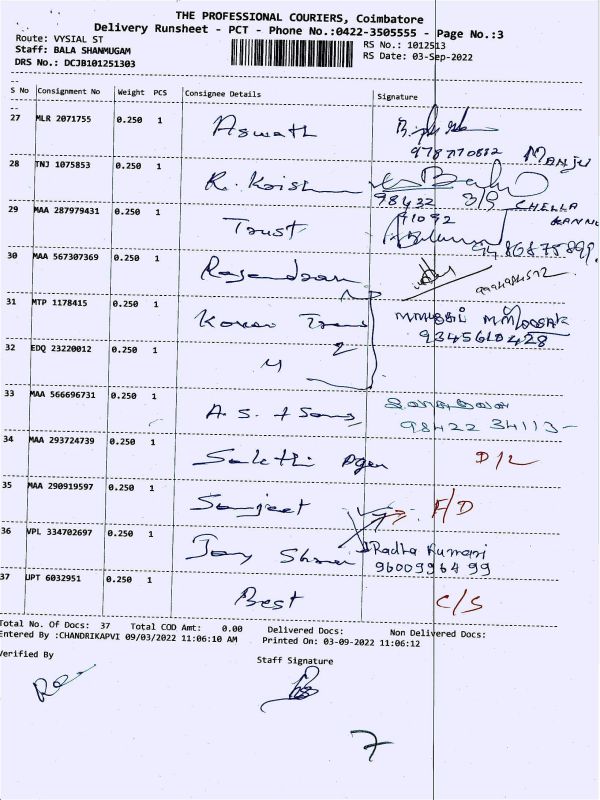 THE PROFESSIONAL COURIERS, Coimbatore
Delivery Runsheet - PCT - Phone No.:0422-3505555 - Page No.:3
Route: VYSIAL ST
RS No.: 1012513
Staff: BALA SHANMUGAM
RS Date: 03-Sep-2022
DRS No.: DCJB101251303
S No Consignment No Weight PCS Consignee Details Signature
27 MLR 2071755 0.250 1 Aswath
9787770882 MANJU
28 TNJ 1075853 0.250 1 R. Krish
98432
71092
CHELLA
KANNU
29 MAA 287979431 0.250 1 Trust
9486875899
30 MAA 567307369 0.250 1 Rajendran
31 MTP 1178415 0.250 1
9345610428
32 EDQ 23220012 0.250 1 4 2
33 MAA 566696731 0.250 1 A. S. & Sons
98422 34113
34 MAA 293724739 0.250 1 Sakthi Agen D/L
35 MAA 290919597 0.250 1 Sanjeet F/D
36 VPL 334702697 0.250 1 Jay Radha Kumari
9600996499
37 UPT 6032951 0.250 1 Best C/S
Total No. Of Docs: 37 Total COD Amt: 0.00 Delivered Docs: Non Delivered Docs:
Entered By :CHANDRIKAPVI 09/03/2022 11:06:10 AM Printed On: 03-09-2022 11:06:12
Verified By
Staff Signature
7